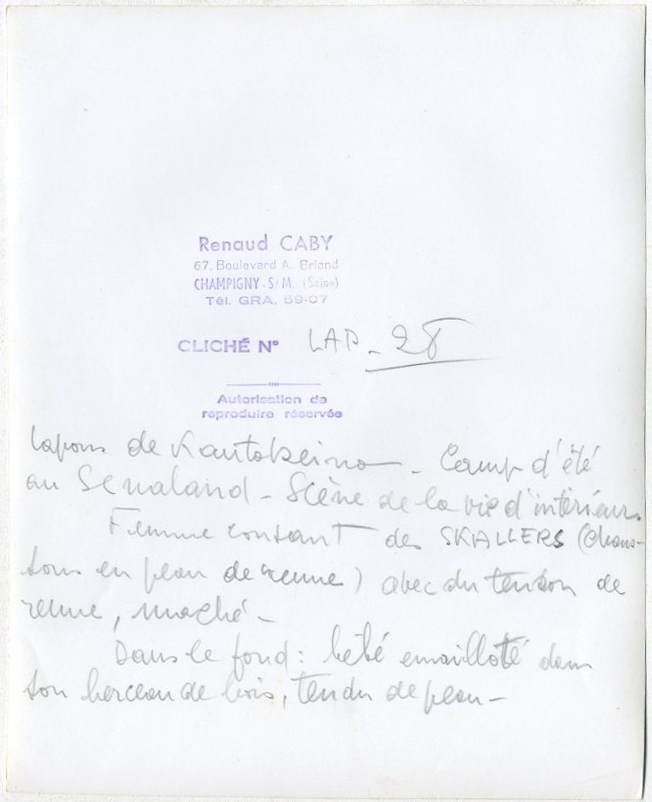 Renaud CABY
67, Boulevard A. Briand
CHAMPIGNY-S/M. (Seine)
Tél. GRA. 59-07
CLICHÉ N° LAP - 28
Autorisation de
reproduire réservée
Lapons de Kautokeino - Camp d'été
au Senaland - Scène de la vie d'intérieur.
Femme cousant des SKALLERS (Chaus-
sons en peau de renne) avec du tendon de
renne, maché -
Dans le fond : bébé emmailloté dans
son berceau de bois, tendu de peau -